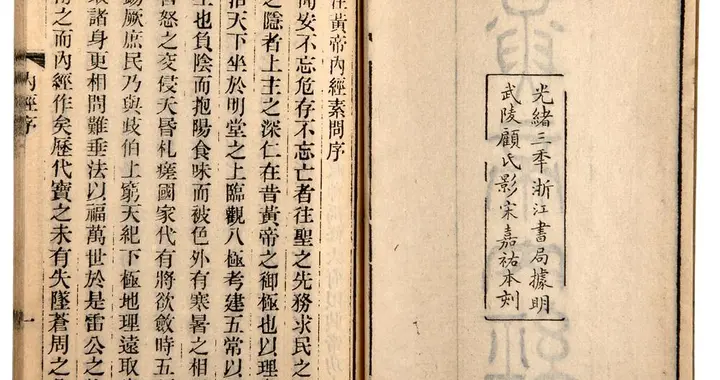 光緒三秊浙江書局據明
武陵顧氏影宋嘉祐本刻
注黃帝內經素問序
安不忘危存不忘亡者往聖之先務求民之
之隱者上主之深仁在昔黃帝之御極也以理
天下坐於明堂之上臨觀八極考建五常以
生也負陰而抱陽食味而被色外有寒暑之相
喜怒之交侵夭昏札瘥國家代有將欲斂時五
錫厥庶民乃與岐伯上窮天紀下極地理遠取
諸身更相問難垂法以福萬世於是雷公之
之而內經作矣歷代寶之未有失墜蒼周之
內經序 一